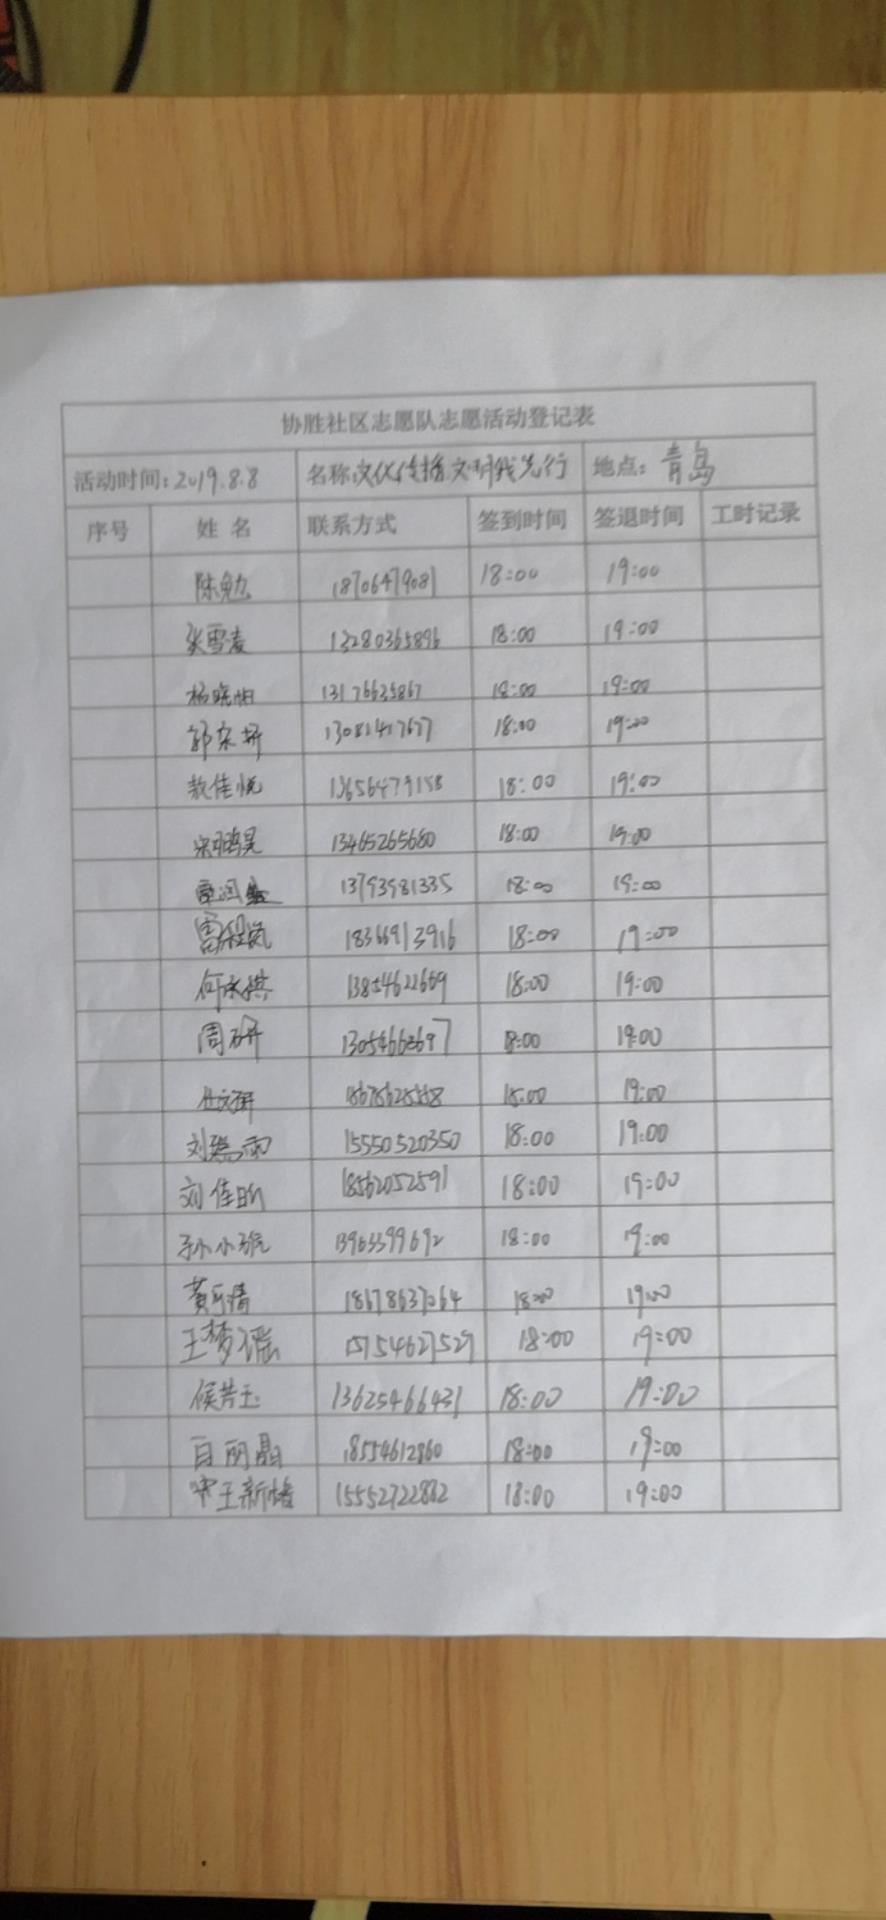 协胜社区志愿队志愿活动登记表
活动时间：2019.8.8 名称：文化传播，文明我先行 地点：青岛
序号 姓名 联系方式 签到时间 签退时间 工时记录
陈勉 18706479081 18:00 19:00
张雪凌 13280365896 18:00 19:00
杨晓 13176635867 18:00 19:00
郭东妍 18:00 19:00
敖佳悦 13656479158 18:00 19:00
宋鹏昊 13465265680 18:00 19:00
13793981335 18:00 19:00
18366913916 18:00 19:00
何永祺 13854622669 18:00 19:00
周研 18:00 19:00
18:00 19:00
刘瑞雨 15550520350 18:00 19:00
刘佳昕 18562052591 18:00 19:00
孙小 18:00 19:00
黄可清 18678637064 18:00 19:00
王梦瑶 15754627529 18:00 19:00
侯芳玉 13625466431 18:00 19:00
白丽晶 18554612860 18:00 19:00
王新 15552722882 18:00 19:00